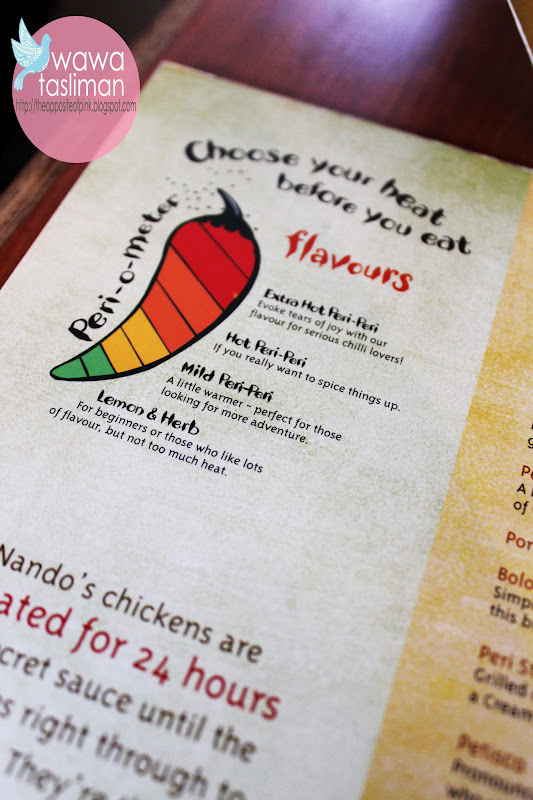 wawa
tasliman
http://theoppositeofpink.blogspot.com
Choose your heat
before you eat
Peri-o-meter
flavours
Extra Hot Peri-Peri
Evoke tears of joy with our
flavour for serious chilli lovers!
Hot Peri-Peri
If you really want to spice things up.
Mild Peri-Peri
A little warmer – perfect for those
looking for more adventure.
Lemon & Herb
For beginners or those who like lots
of flavour, but not too much heat.
Nando's chickens are
ated for 24 hours
cret sauce until the
es right through to
They're
Pe
A
of
Por
Bolo
Simp
this b
Peri S
Grilled
a Cream
Petisco
Pronounc
who